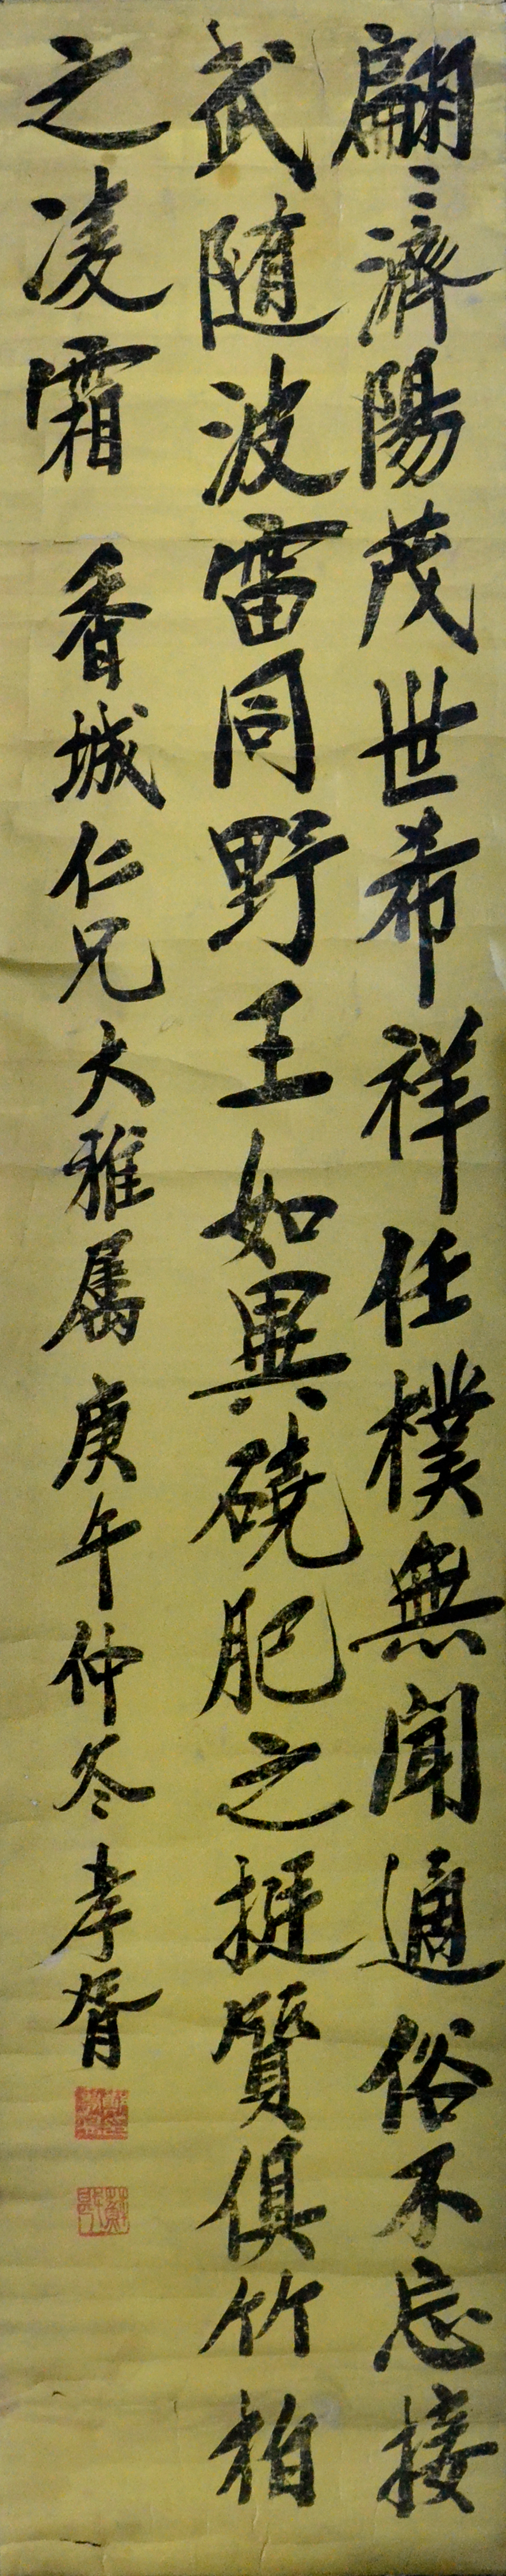 翩〻濟陽茂世希祥任樸無聞適俗不忘接
武随波雷同野王如異磽肥之挺質俱竹柏
之凌霜 香城仁兄大雅属 庚午仲冬 孝胥